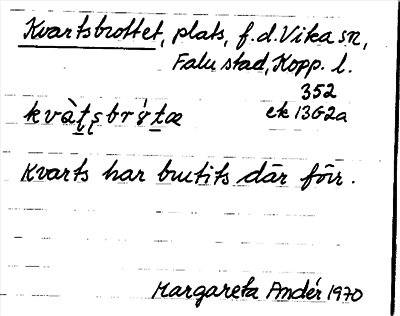 Kvartsbrottet, plats, f.d. Vika sn,
Falu stad, Kopp. l.
352
ek 13G2a
kvàt̠ṣbrɤ́t̠æ
Kvarts har brutits där förr.
Margareta Andér 1970